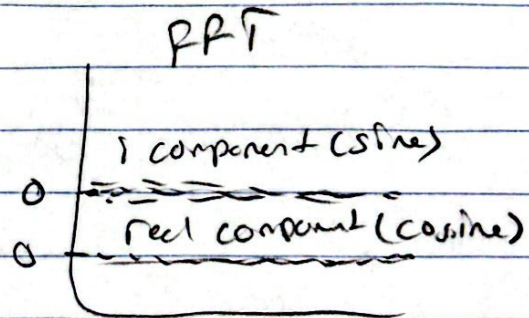 FFT
i component (sine)
0
real component (cosine)
0